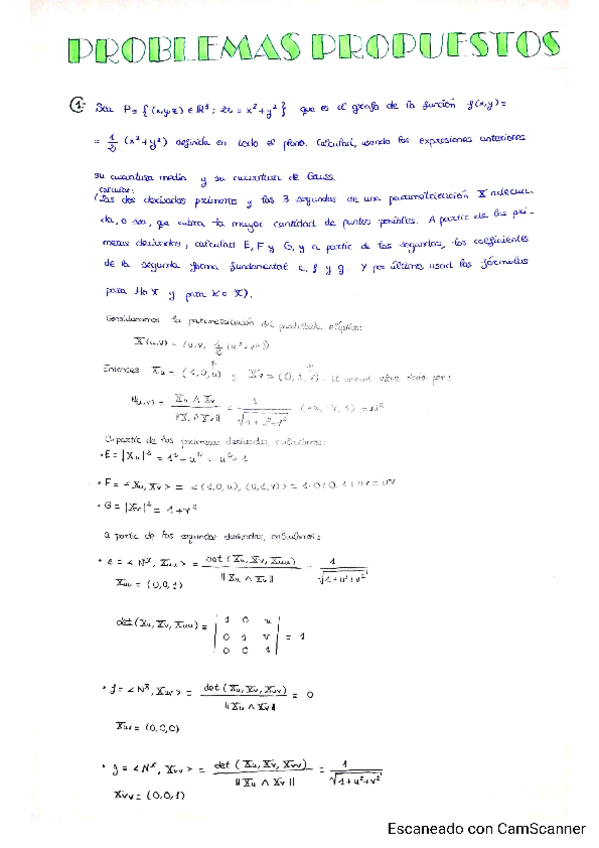 PROBLEMAS PROPUESTOS
1. Sea P = {(x,y,z) ∈ ℝ³ ; 2z = x² + y²} que es el grafo de la función f(x,y) =
= 1/2 (x² + y²) definida en todo el plano. Calculad, usando las expresiones anteriores
su curvatura media y su curvatura de Gauss.
Calcular:
(Las dos derivadas primeras y las 3 segundas de una parametrización X adecua-
da, o sea, que cubra la mayor cantidad de puntos posibles. A partir de las pri-
meras derivadas, calculad E, F y G, y a partir de las segundas, los coeficientes
de la segunda forma fundamental e, f y g. Y por último usad las fórmulas
para H∘X y para K∘X).
Consideramos la parametrización del paraboloide elíptico:
X(u,v) = (u,v, 1/2 (u²+v²))
Entonces X_u = (1,0,u) y X_v = (0,1,v). El normal viene dado por:
N(u,v) = X_u ∧ X_v / ||X_u ∧ X_v|| = 1/√(1+u²+v²) (-u,-v,1) = N^X
A partir de las primeras derivadas, calculamos:
• E = |X_u|² = 1² + u² = u²+1
• F = <X_u, X_v> = <(1,0,u), (0,1,v)> = 1·0+0·1+uv = uv
• G = |X_v|² = 1+v²
a partir de las segundas derivadas, calculamos:
• e = <N^X, X_uu> = det(X_u, X_v, X_uu) / ||X_u ∧ X_v|| = 1/√(1+u²+v²)
X_uu = (0,0,1)
det(X_u, X_v, X_uu) = | 1 0 u
0 1 v
0 0 1 | = 1
• f = <N^X, X_uv> = det(X_u, X_v, X_uv) / ||X_u ∧ X_v|| = 0
X_uv = (0,0,0)
• g = <N^X, X_vv> = det(X_u, X_v, X_vv) / ||X_u ∧ X_v|| = 1/√(1+u²+v²)
X_vv = (0,0,1)
Escaneado con CamScanner